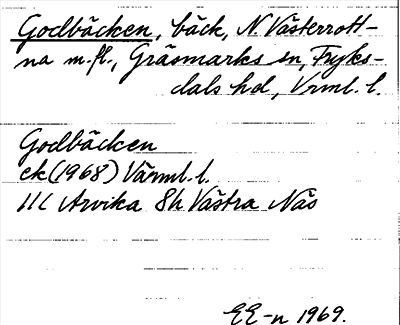 Godbäcken, bäck, N. Västerrott-
na m.fl., Gräsmarks sn, Fryks-
dals hd, Vrml. l.
Godbäcken
ek (1968) Värml. l.
11C Arvika 8h Västra Näs
EE-n 1969.